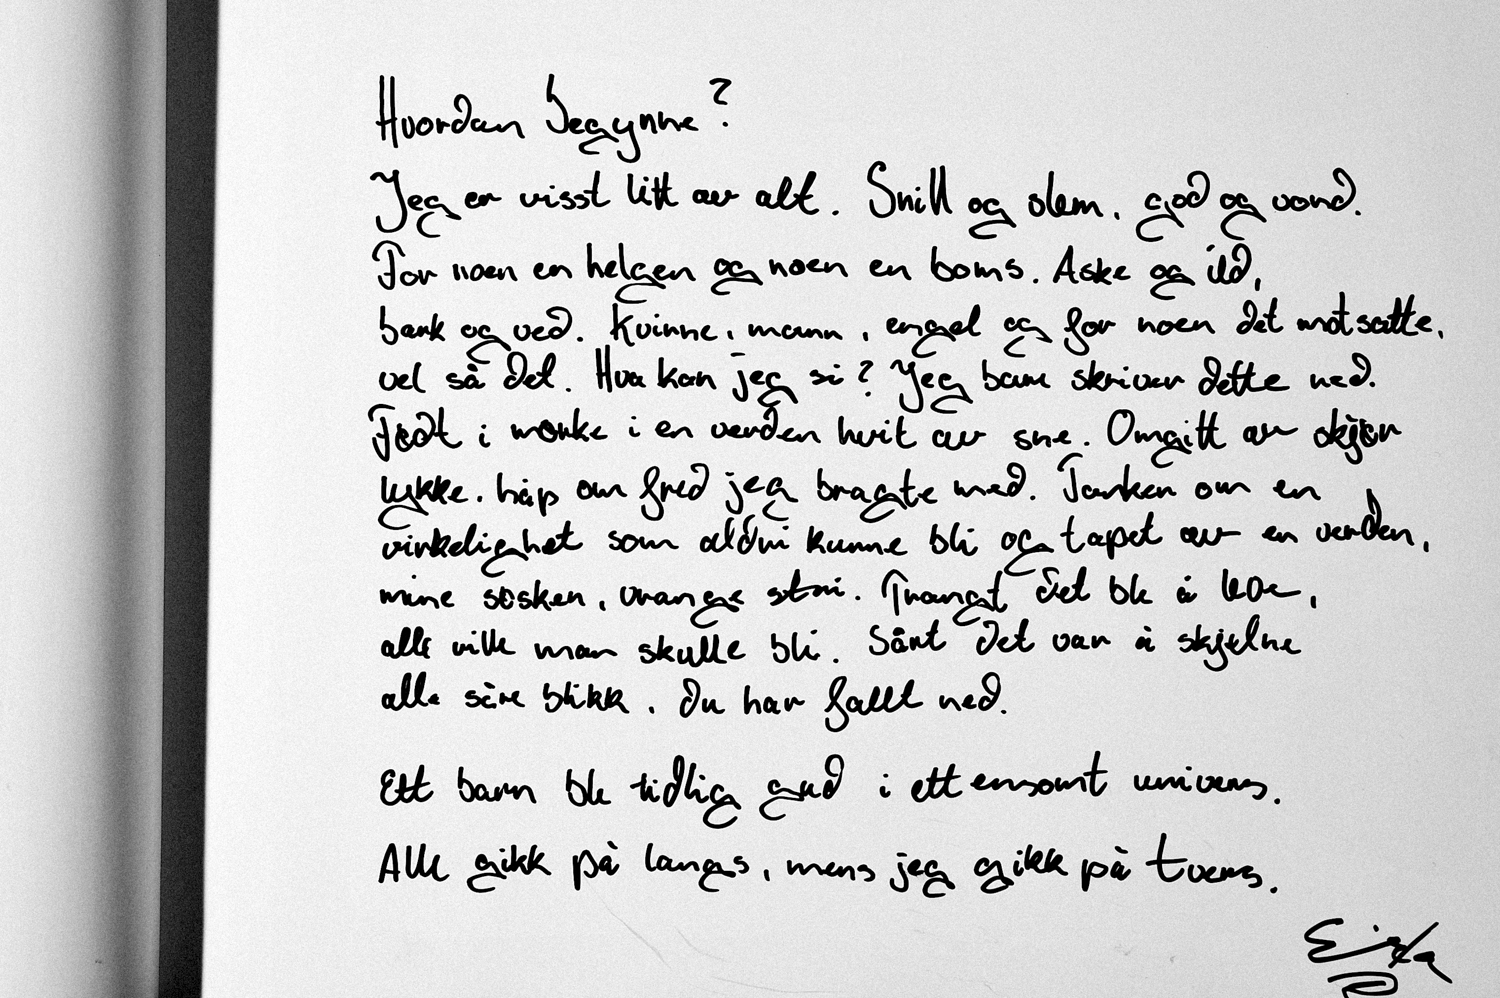 Hvordan begynne?
Jeg er visst litt av alt. Snill og slem, god og vond.
For noen en helgen og noen en boms. Aske og ild,
bark og ved. Kvinne, mann, engel og for noen det motsatte,
vel så det. Hva kan jeg si? Jeg bare skriver dette ned.
Født i mørke i en verden hvit av sne. Omgitt av skjør
lykke, håp om fred jeg bragte med. Tanken om en
virkelighet som aldri kunne bli og tapet av en verden,
mine søsken, vrange stri. Trangt det ble å leve,
alle ville man skulle bli. Sårt det var å skjelne
alle såre blikk. Du har falt ned.
Ett barn ble tidlig gud i ett ensomt univers.
Alle gikk på langs, mens jeg gikk på tvers.